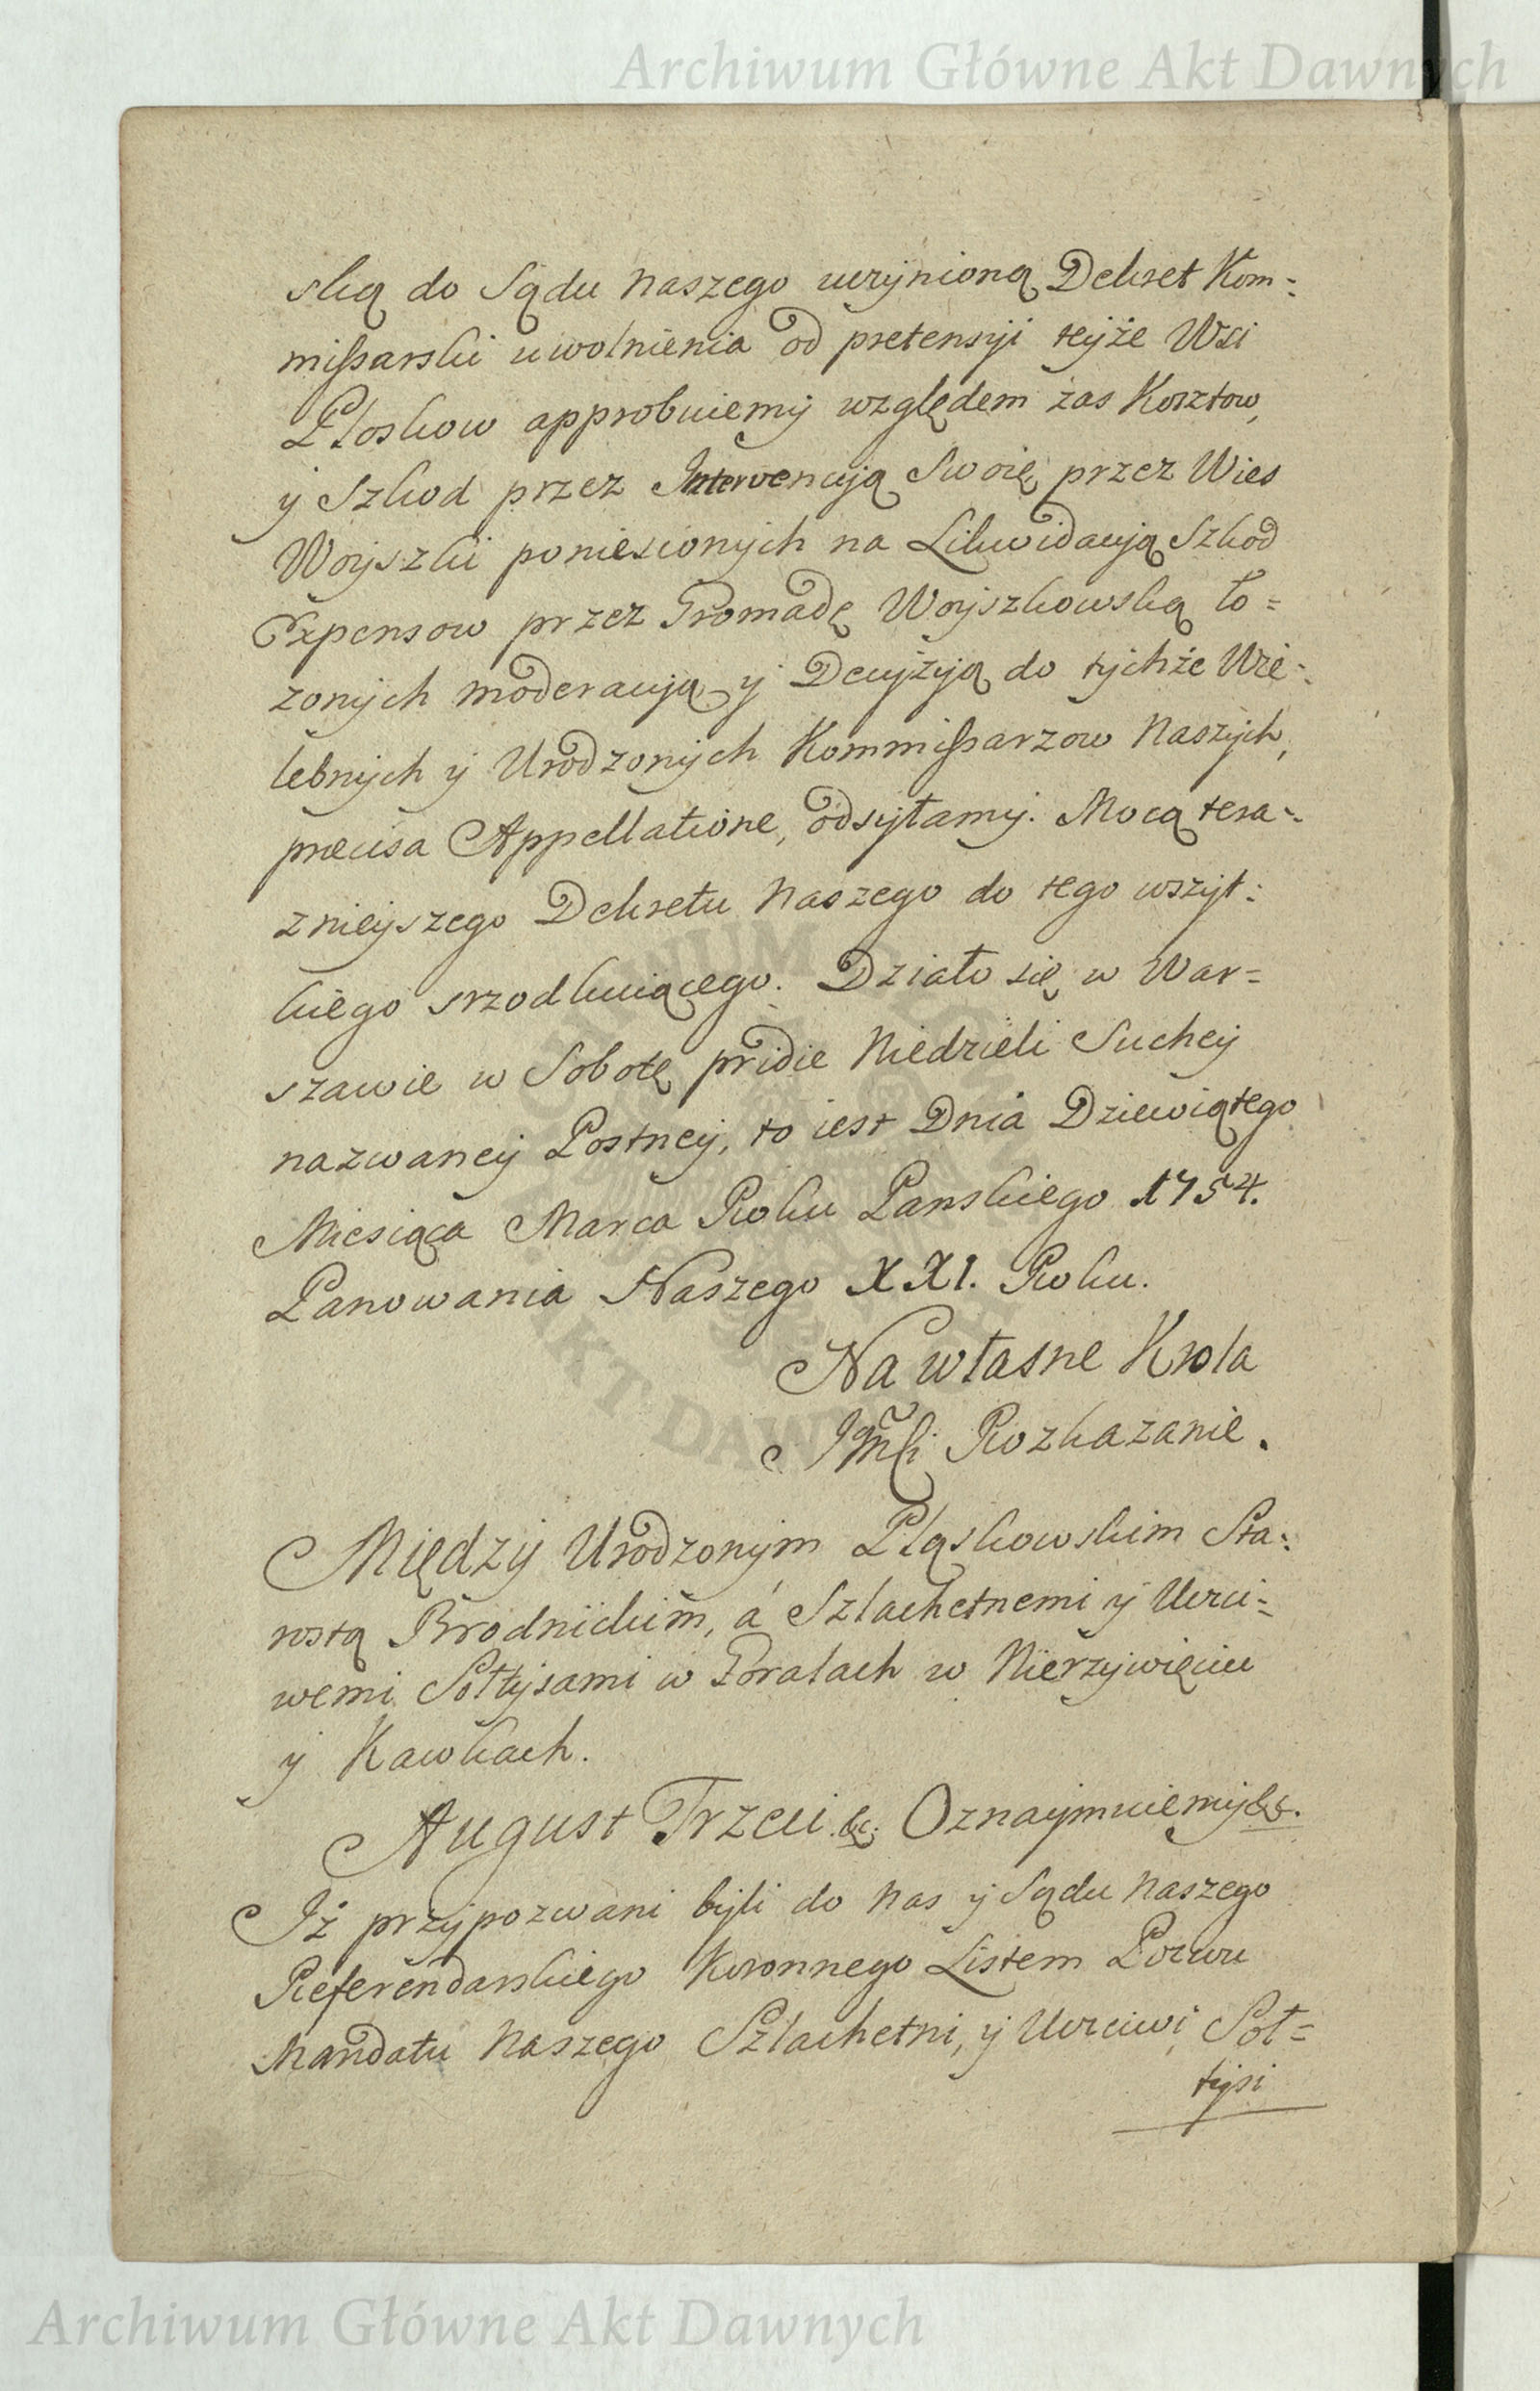 Archiwum Główne Akt Dawnych
ską do Sądu Naszego uczynioną Dekret Kom=
missarski uwolnienia od pretensyi teyże Wsi
Ploskow approbuiemy względem zas Kosztow,
y Szkod przez Intervencyą Swoię przez Wies
Woyszki poniesionych na Likwidacyą Szkod
Expensow przez Gromadę Woyszkowską ło=
zonych moderacyą y Decyzyą do tychże Wie=
lebnych y Urodzonych Kommissarzow Naszych,
precisa Appellatione, odsyłamy. Mocą tera=
znieyszego Dekretu Naszego do tego wszyt=
kiego srzodkuiącego. Działo się w War=
szawie w Sobotę pridie Niedzieli Suchey
nazwaney Postney, to iest Dnia Dziewiątego
Miesiąca Marca Roku Panskiego 1754.
Panowania Naszego XXI. Roku.
Na własne Krola
Jmści Rozkazanie.
Między Urodzonym Pląskowskim Sta=
rostą Brodnickim, á Szlachetnemi y Uczci=
wemi Sołtysami w Goralach w Nierzywięciu
y Kawkach.
August Trzeci &c. Oznaymuiemy &c.
Iż przypozwani byli do Nas y Sądu Naszego
Referendarskiego Koronnego Listem Pozwu
Mandatu Naszego Szlachetni, y Uczciwi Soł=
tysi
Archiwum Główne Akt Dawnych